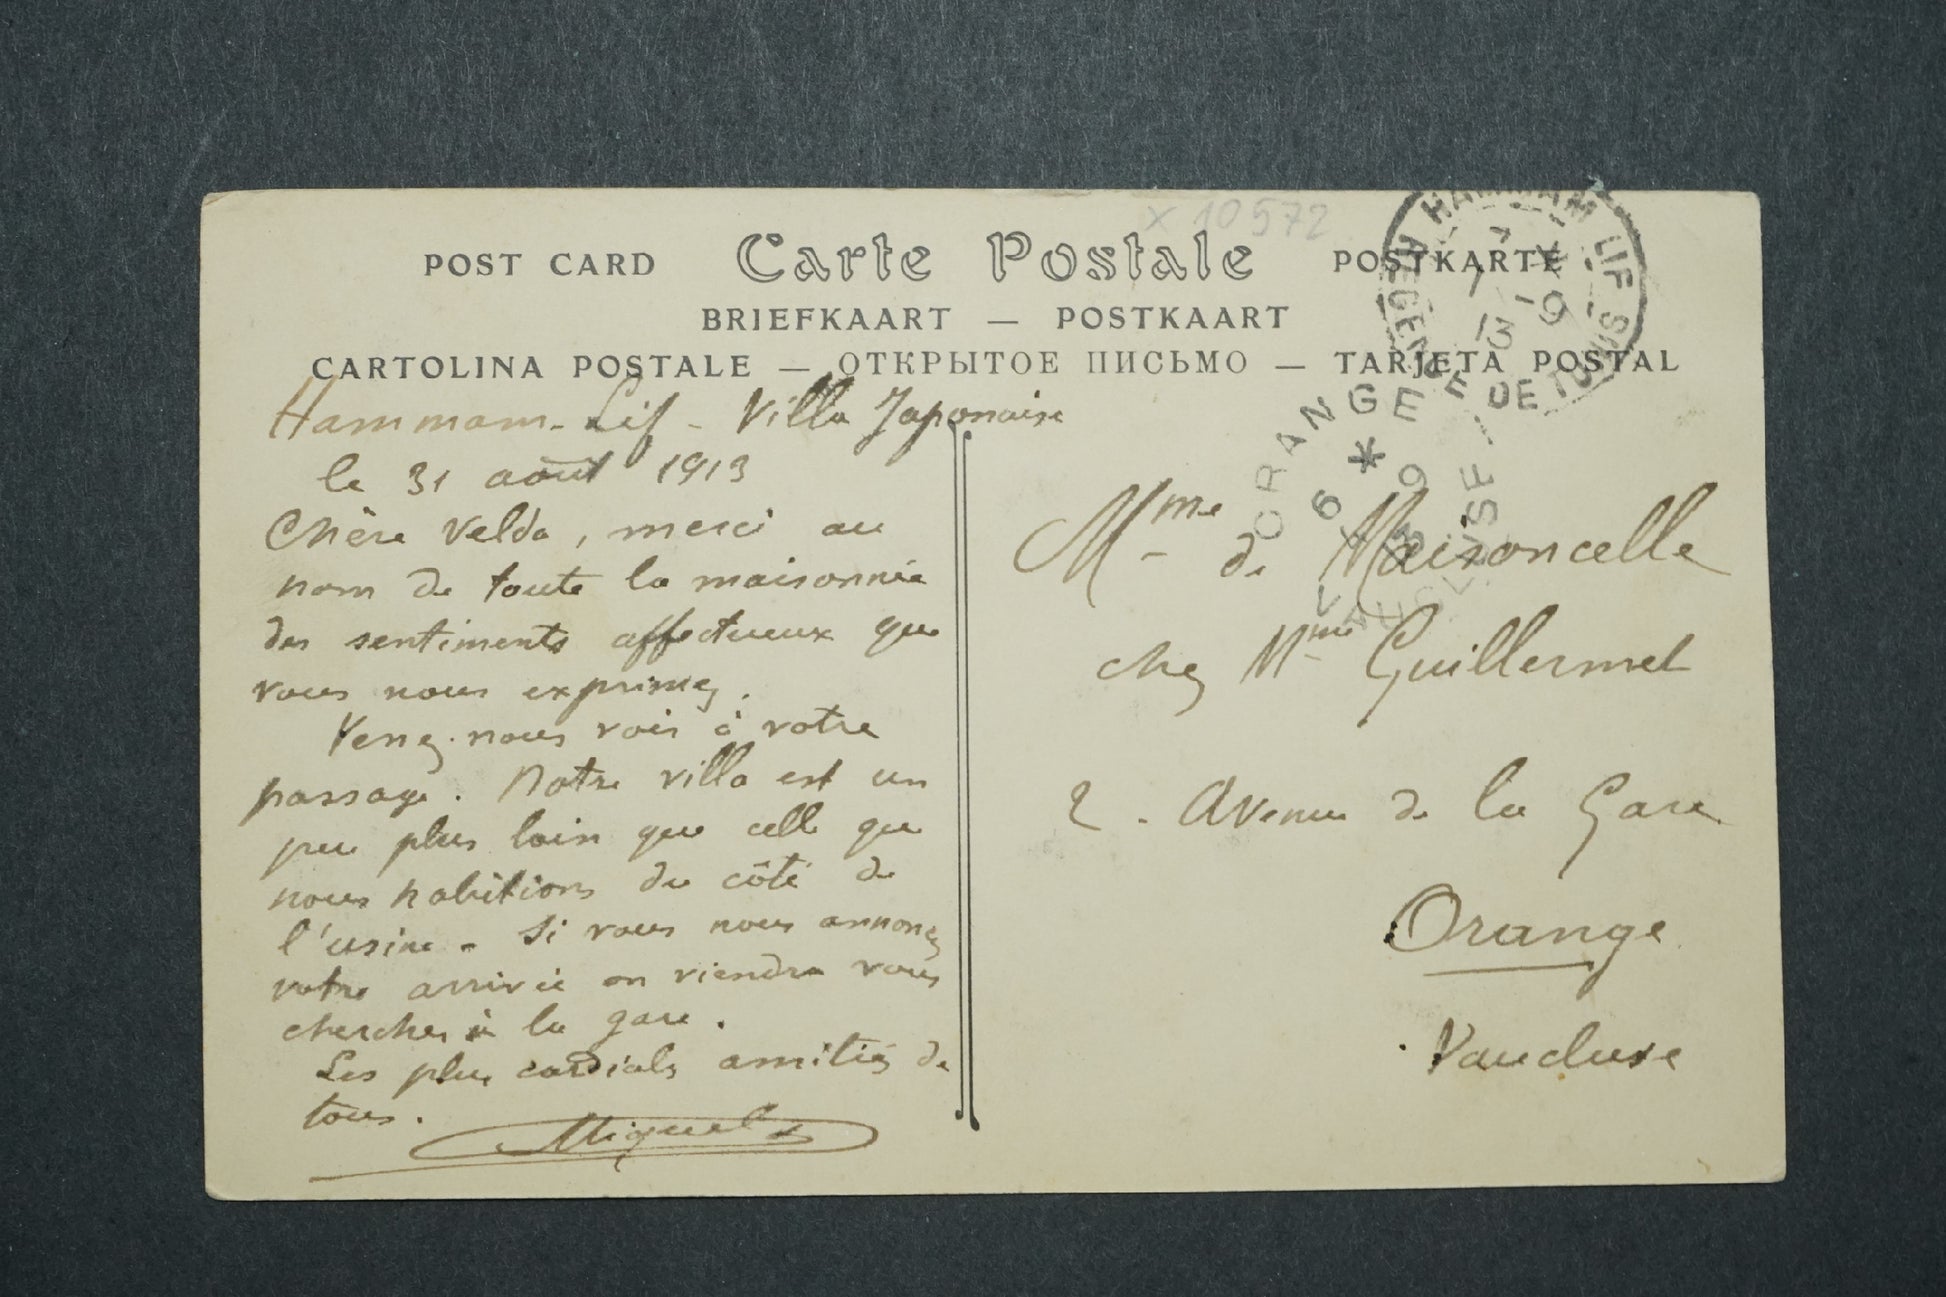 x 10572
POST CARD Carte Postale POSTKARTE
BRIEFKAART — POSTKAART
CARTOLINA POSTALE — ОТКРЫТОЕ ПИСЬМО — TARJETA POSTAL
HAMMAM LIF
REGENCE DE TUNIS
1 -9
13
ORANGE
* 6 9
13
VAUCLUSE
Hammam-Lif - Villa Japonaise
le 31 août 1913
Chère Velda, merci au
nom de toute la maisonnée
des sentiments affectueux que
vous nous exprimez.
Venez-nous voir à votre
passage. Notre villa est un
peu plus loin que celle que
nous habitions du côté de
l'usine - Si vous nous annoncez
votre arrivée on viendra vous
chercher à la gare.
Les plus cordiales amitiés de
tous.
Miguel
Mme de Maisoncelle
chez Mme Guillermet
2 - Avenue de la Gare
Orange
Vaucluse